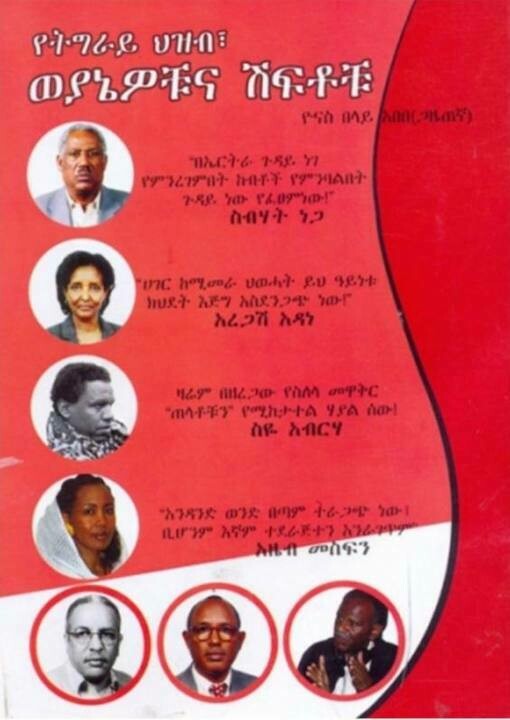 የትግራይ ህዝብ፣
ወያኔዎቹና ሽፍቶቹ
ዮናስ በላይ አበበ(ጋዜጠኛ)
"በኤርትራ ጉዳይ ነገ
የምንረገምበት ከብቶች የምንባልበት
ጉዳይ ነው የፈፀምነው!"
ስብሃት ነጋ
"ሀገር ከሚመራ ህወሓት ይህ ዓይነቱ
ክህደት እጅግ አስደንጋጭ ነው!"
አረጋሽ አዳነ
ዛሬም በዘረጋው የስለላ መዋቅር
"ጠላቶቹን" የሚከታተል ሃያል ሰው!
ስዬ አብርሃ
"አንዳንድ ወንድ በጣም ትራጋጭ ነው፤
ቢሆንም እኛም ተደራጅተን እንራገጣም"
አዜብ መስፍን